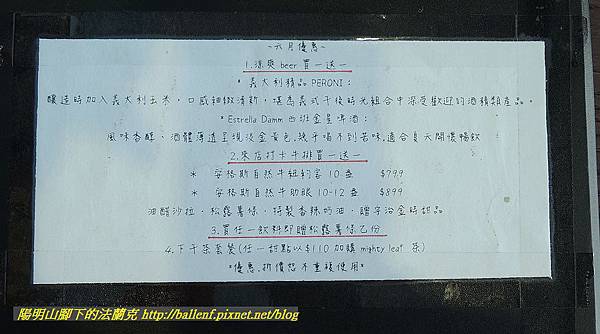 ~六月優惠~
1.涼爽 beer 買一送一
* 義大利精品 PERONI：
釀造時加入義大利玉米，口感細緻清新，堪為義式午後時光組合中深受歡迎的酒精類產品。
*Estrella Damm 西班金星啤酒：
風味香醇、酒體薄透呈現淡金黃色,幾乎喝不到苦味,適合夏天開懷暢飲
2.來店打卡牛排買一送一
* 安格斯自然牛紐約客 10 盎 $799
* 安格斯自然牛肋眼 10-12 盎 $899
油醋沙拉、松露薯條、特製香辣奶油、贈宇治金時甜品
3.買任一飲料即贈松露薯條乙份
4.下午茶套餐(任一甜點以$110 加購 mighty leaf 茶)
*優惠、折價恕不重複使用*
陽明山腳下的法蘭克 http://ballenf.pixnet.net/blog